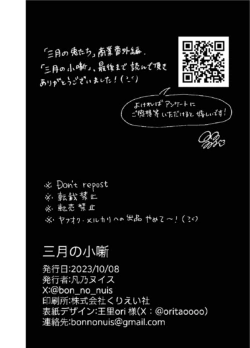 「三月の兎たち」商業番外編
「三月の小噺」、最後まで読んで頂て
ありがとうございました!(:')
よければアンケートに
ご感想等いただけると嬉しいです!
※ Don't repost
※ 転載禁止
※ 転売禁止
※ ヤフオク・メルカリへの出品 やめて〜!(:'<)
三月の小噺
発行日:2023/10/08
発行者:凡乃ヌイス
X:@bon_no_nuis
印刷所:株式会社くりえい社
表紙デザイン:王里ori 様(X:@oritaoooo)
連絡先:bonnonuis@gmail.com